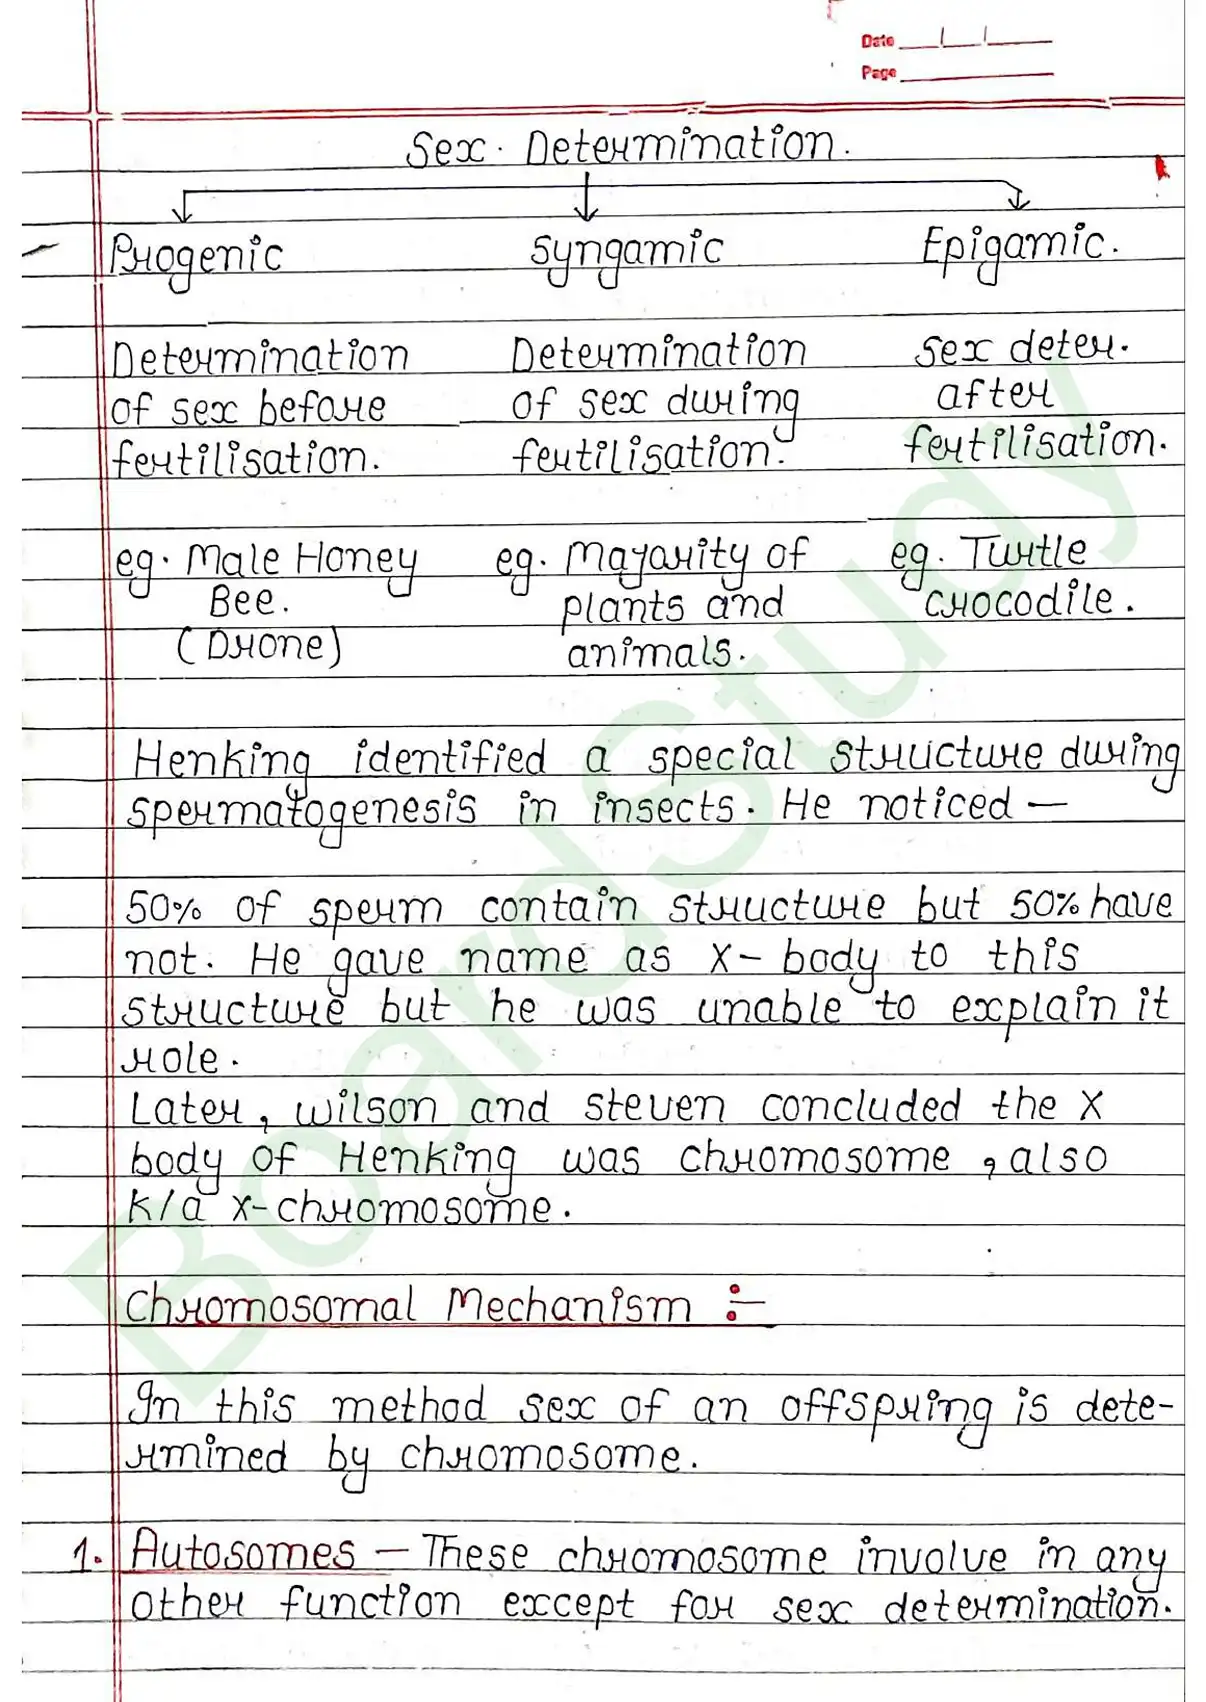 Date
Page
Sex. Determination.
Progenic Syngamic Epigamic.
Determination
of sex before
fertilisation.
Determination
of sex during
fertilisation.
sex deter.
after
fertilisation.
eg. Male Honey
Bee.
(Drone)
eg. Majority of
plants and
animals.
eg. Turtle
crocodile.
Henking identified a special structure during
spermatogenesis in insects. He noticed —
50% of sperm contain structure but 50% have
not. He gave name as X- body to this
structure but he was unable to explain it
role.
Later, wilson and steven concluded the X
body of Henking was chromosome, also
K/a X-chromosome.
Chromosomal Mechanism :-
In this method sex of an offspring is dete-
rmined by chromosome.
1. Autosomes — These chromosome involve in any
other function except for sex determination.
BoardStudy